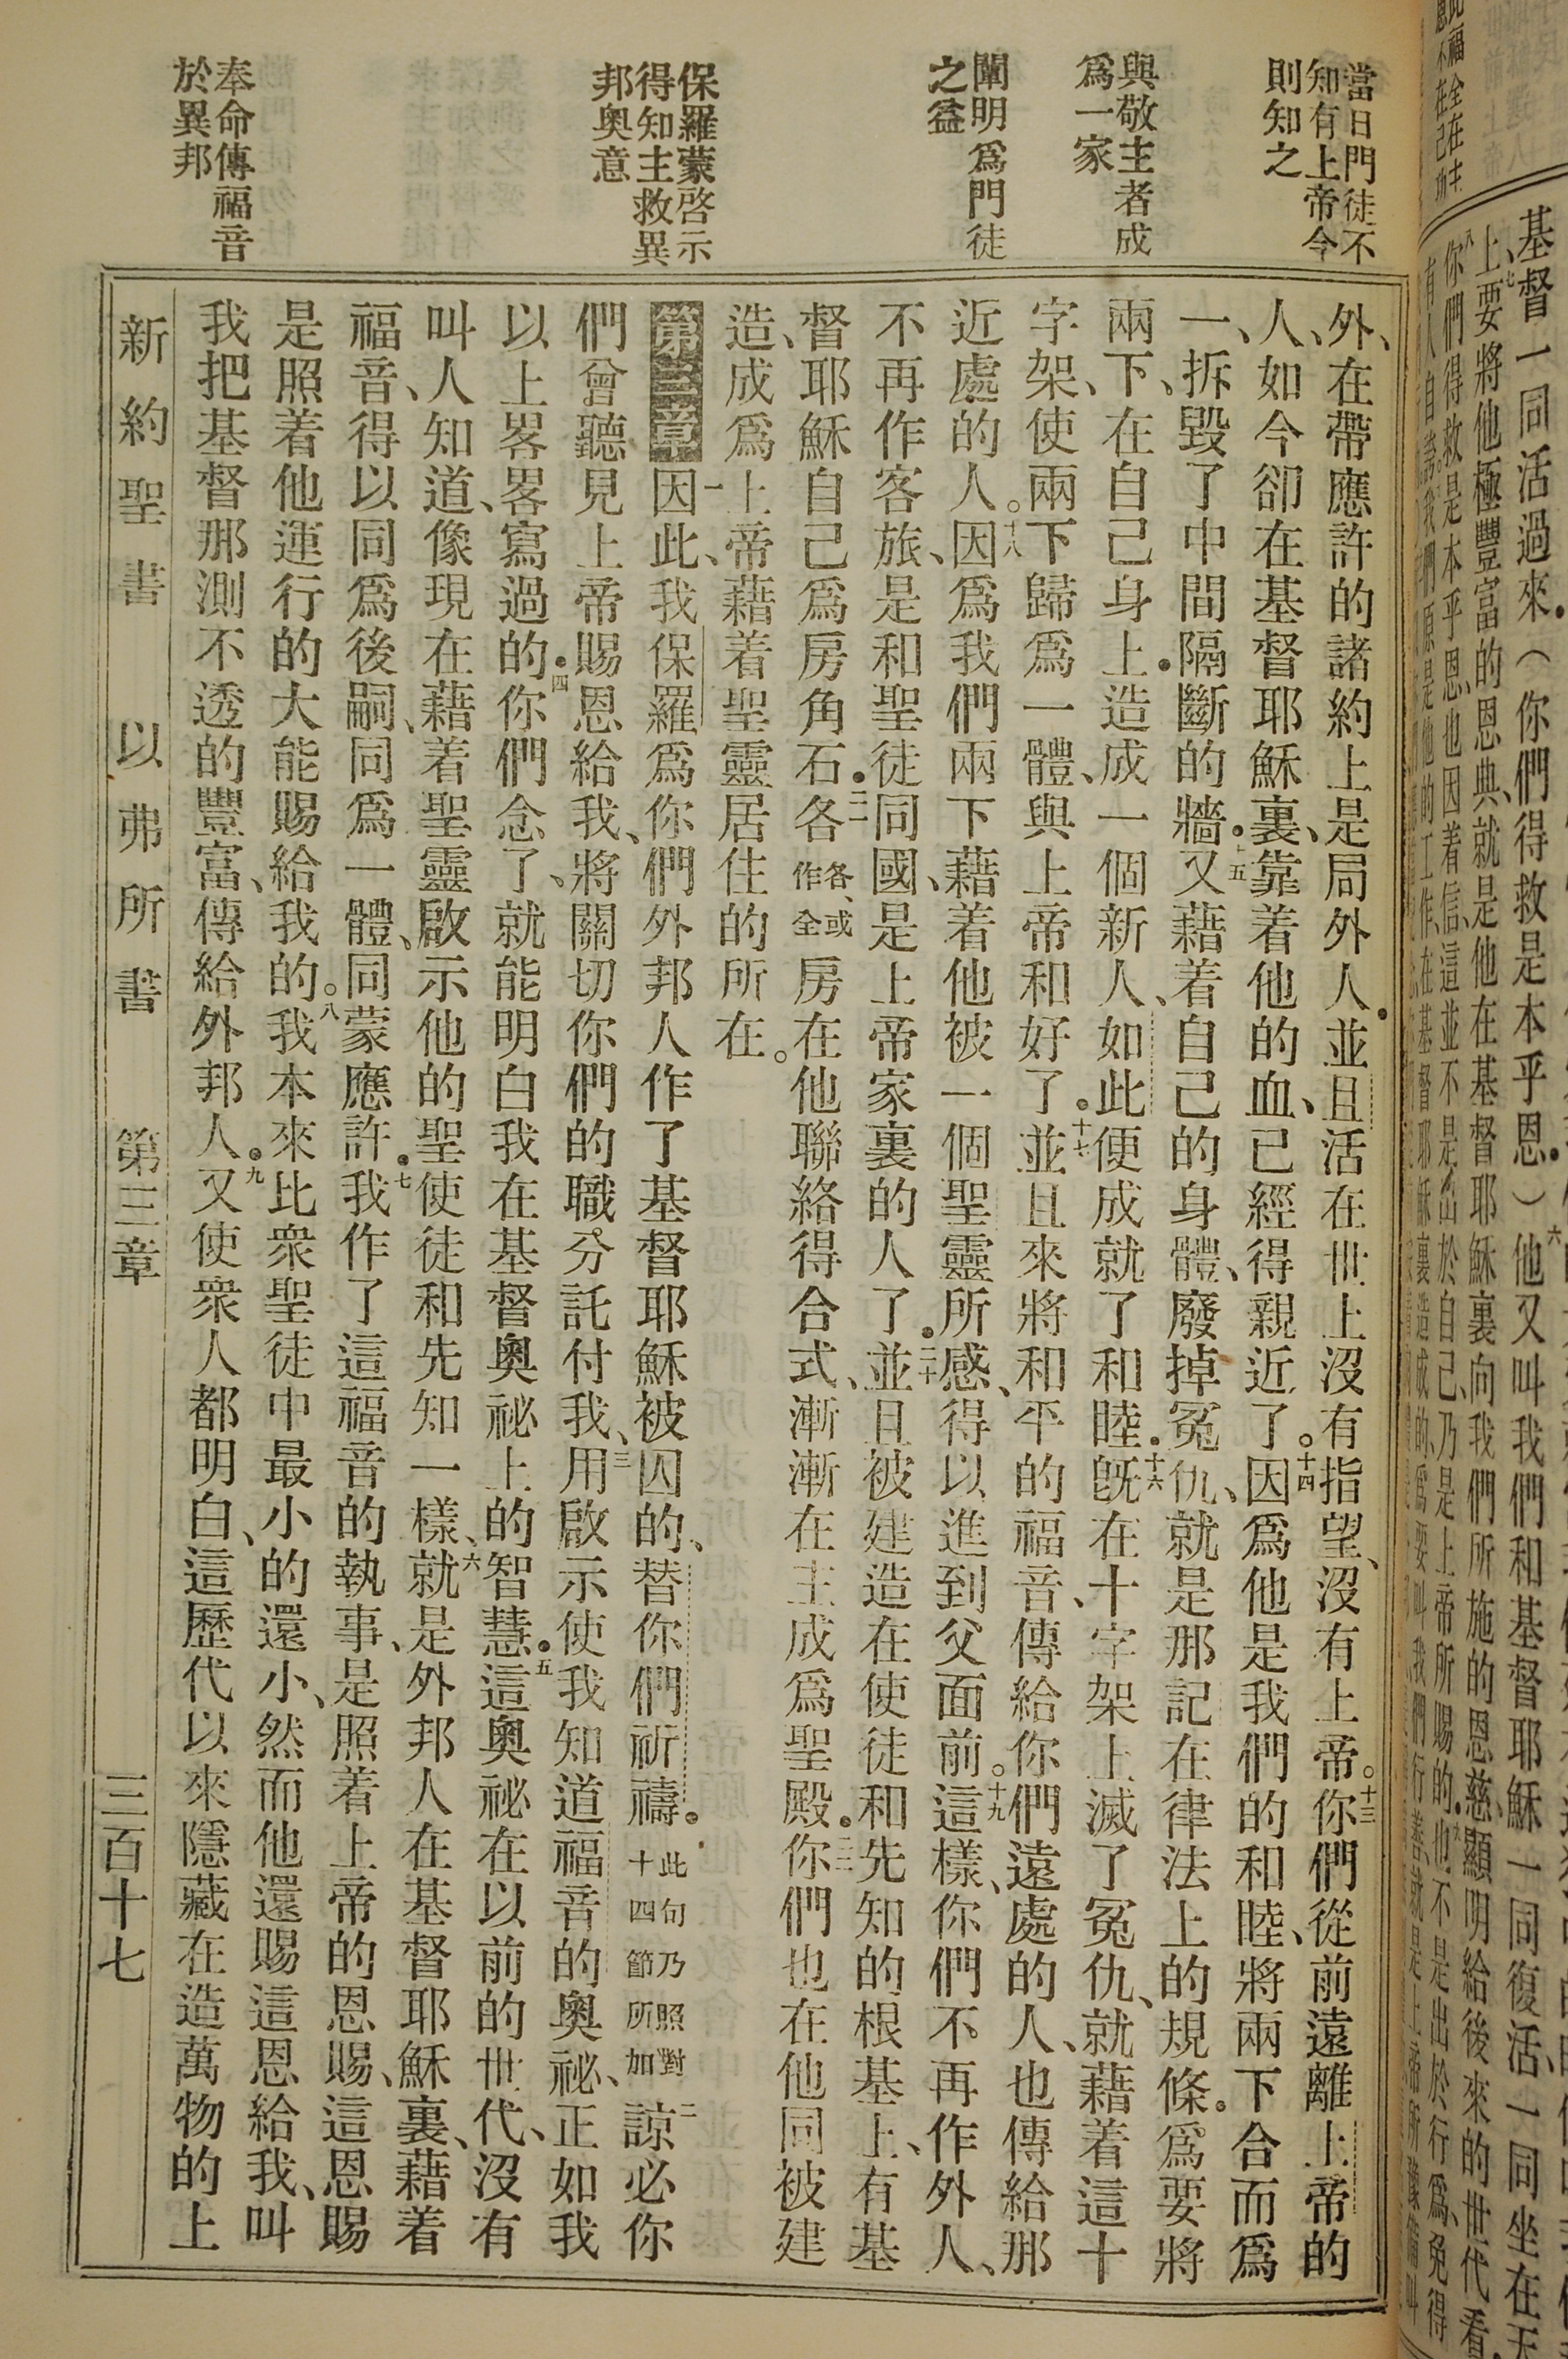 基督一同活過來．（你們得救是本乎恩．）六他又叫我們和基督耶穌一同復活、一同坐在天
上、七要將他極豐富的恩典、就是他在基督耶穌裏向我們所施的恩慈、顯明給後來的世代看．
八你們得救是本乎恩、也因着信、這並不是出於自己、乃是上帝所賜的．也不是出於行爲、免得
當日門徒不
知有上帝今
則知之
與敬主者成
爲一家
闡明爲門徒
之益
保羅蒙啓示
得知主救異
邦奧意
奉命傳福音
於異邦
外、在帶應許的諸約上是局外人．並且活在世上沒有指望、沒有上帝。十三你們從前遠離上帝的
人、如今卻在基督耶穌裏、靠着他的血、已經得親近了。十四因爲他是我們的和睦、將兩下合而爲
一、拆毀了中間隔斷的牆．十五又藉着自己的身體、廢掉冤仇、就是那記在律法上的規條．爲要將
兩下、在自己身上．造成一個新人、如此便成就了和睦．十六既在十字架上滅了冤仇、就藉着這十
字架、使兩下歸爲一體、與上帝和好了．十七並且來將和平的福音、傳給你們遠處的人、也傳給那
近處的人。十八因爲我們兩下藉着他被一個聖靈所感、得以進到父面前。十九這樣、你們不再作外人、
不再作客旅、是和聖徒同國、是上帝家裏的人了．二十並且被建造在使徒和先知的根基上、有基
督耶穌自己爲房角石．二一各各、或作全房在他聯絡得合式、漸漸在主成爲聖殿．二二你們也在他同被建
造、成爲上帝藉着聖靈居住的所在。
第三章一因此、我保羅爲你們外邦人作了基督耶穌被囚的、替你們祈禱。此句乃照對十四節所加二諒必你
們曾聽見上帝賜恩給我、將關切你們的職分託付我、三用啟示使我知道福音的奧祕、正如我
以上畧畧寫過的．四你們念了、就能明白我在基督奧祕上的智慧．五這奧祕在以前的世代、沒有
叫人知道、像現在藉着聖靈啟示他的聖使徒和先知一樣、六就是外邦人在基督耶穌裏、藉着
福音、得以同爲後嗣、同爲一體、同蒙應許．七我作了這福音的執事、是照着上帝的恩賜、這恩賜
是照着他運行的大能賜給我的。八我本來比衆聖徒中最小的還小、然而他還賜這恩給我、叫
我把基督那測不透的豐富、傳給外邦人．九又使衆人都明白、這歷代以來隱藏在造萬物的上
新約聖書　以弗所書　第三章　三百十七